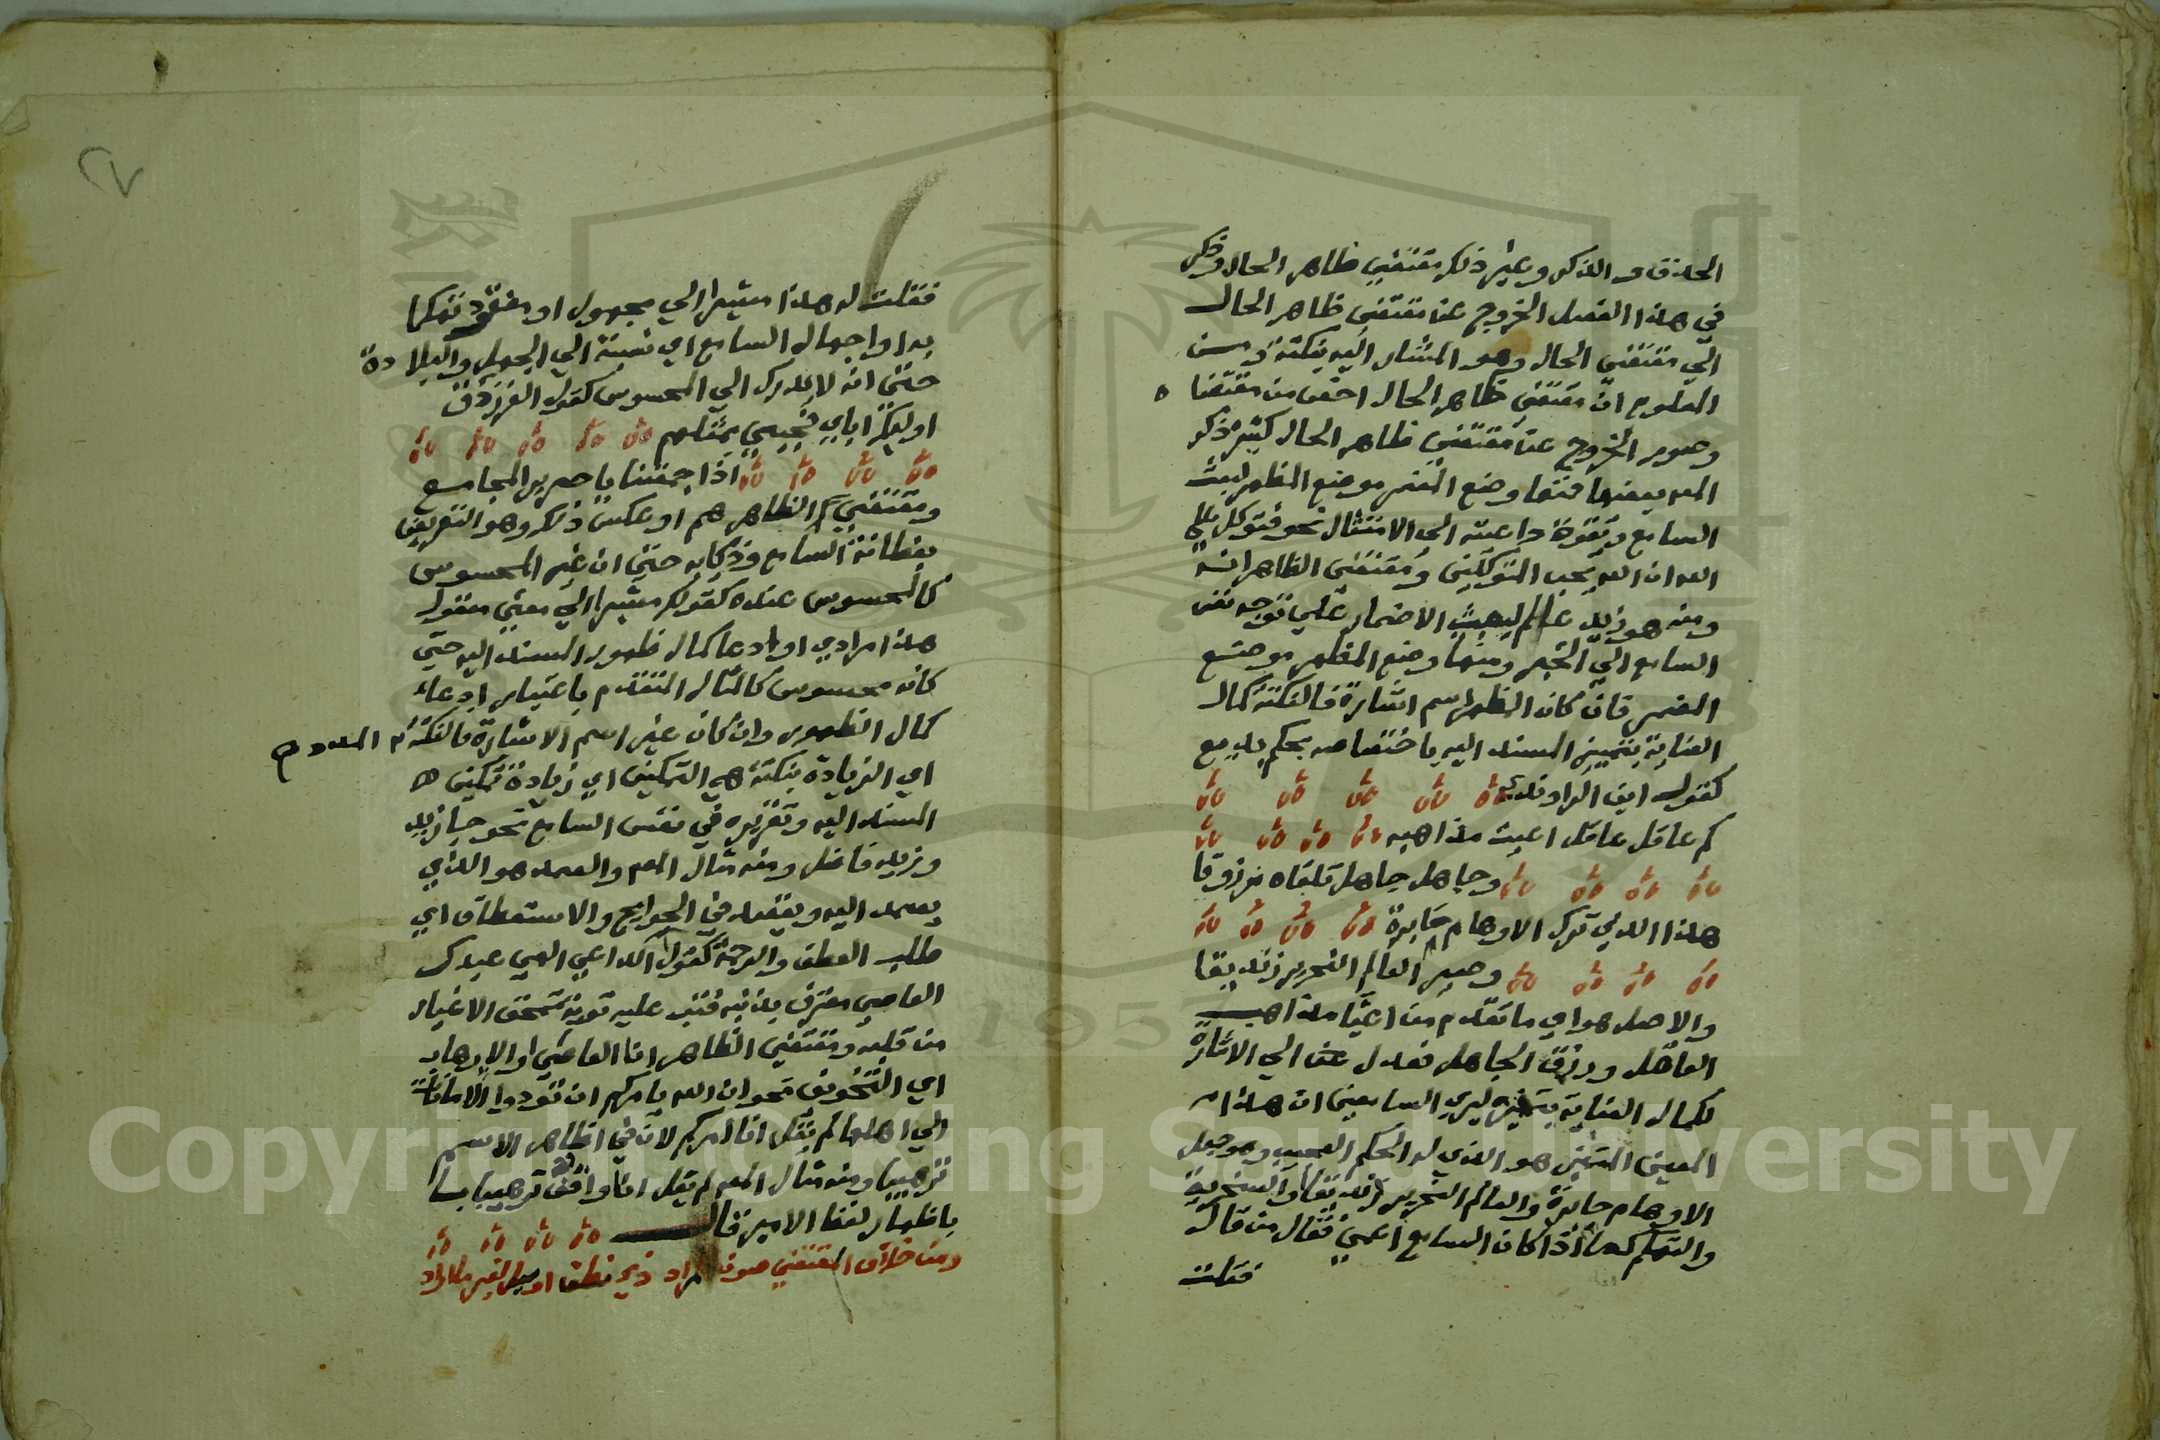 الحذف والذكر وغير ذلك مقتضي ظاهر الحال وذكر
في هذا الفصل الخروج عن مقتضى ظاهر الحال
الي مقتضى الحال وهو المشار اليه بنكتة ومن
المعلوم ان مقتضى ظاهر الحال اخص من مقتضا ه
وصور الخروج عن مقتضي ظاهر الحال كثيرة ذكر
المص بعضها فمنها وضع المضمر موضع المظهر لبعث
السامع وتقوية داعيته الى الامتثال نحو فتوكل علي
الله ان الله يحب المتوكلين ومقتضى الظاهر انه
ومنه هو زيد عالم ليبعث الاضمار علي توجه نفس
السامع الي الخبر ومنها وضع المظهر موضع
المضمر فان كان المظهر اسم اشارة فالنكتة كمال
العناية بتمييز المسند اليه باختصاصه بحكم بديع
كقول ابن الراوندي
كم عاقل عاقل اعيت مذاهبه
وجاهل جاهل تلقاه مرزوقا
هذا الذي ترك الاوهام حايرة
وصير العالم النحرير زنديقا
والاصل هو اي ما تقدم من اعيا مذاهب
العاقل ورزق الجاهل فعدل عنه الي الاشارة
لكمال العناية بتمييزه ليري السامعين ان هذا
المعين المتميز هو الذي له الحكم العجيب وهو جعل
الاوهام حايرة والعالم النحرير زنديقا والسخرية
والتهكم كما اذا كان السامع اعمي فقال من قال
فقلت
فقلت له هذا مشيرا الي مجهول او مفقود تهكما
به او اجهال السامع اي نسبته الي الجهل والبلادة
حتى انه لا يدرك الي المحسوس كقول الفرزدق
اوليك اباي فجيني بمثلهم
اذا جمعتنا يا جرير المجامع
ومقتضي الظاهر هم او عكس ذلك وهو التعريض
بفطانة السامع وذكايه حتى ان غير المحسوس
كالمحسوس عنده كقولك مشيرا الي معني معقول
هذا مرادي او ادعا كمال ظهور المسند اليه حتي
كانه محسوس كالمثال المتقدم باعتبار ادعاء
كمال الظهور وان كان غير اسم الاشارة فالنكتة المدد م
اي الزيادة بنكتة هي التمكين اي زيادة تمكين
المسند اليه وتقريره في نفس السامع نحو جا زيد
وزيد فاضل ومنه مثال المص والصمد هو الذي
يصمد اليه ويقصد في الحوايج والاستعطاف اي
طلب العطف والرحمة كقول الداعي الهي عبدك
العاصي معترف بذنبه فتب عليه توبة تمحق الاغيار
من قلبه ومقتضي الظاهر انا العاصي او الارهاب
اي التخويف نحو ان الله يامركم ان تؤدوا الامانات
الي اهلها لم يقل انا امركم لان في اظهار الاسم
ترهيبا ومنه مثال المص لم يقل انا واقف ترهيبا
باظهار لفظ الامير قال
ومن خلاف المقتضي صرف مراد ذي نطق او سؤل لغير ما اراد